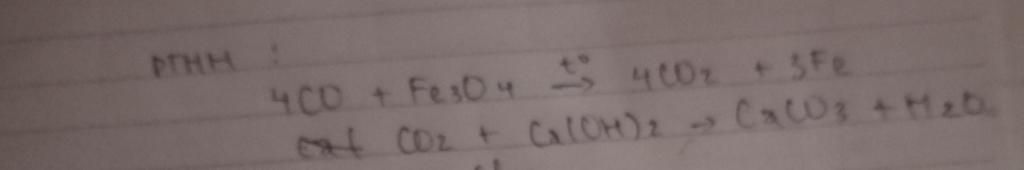 PTHH :
4CO + Fe3O4 t° → 4CO2 + 3Fe
CO2 + Ca(OH)2 → CaCO3 + H2O